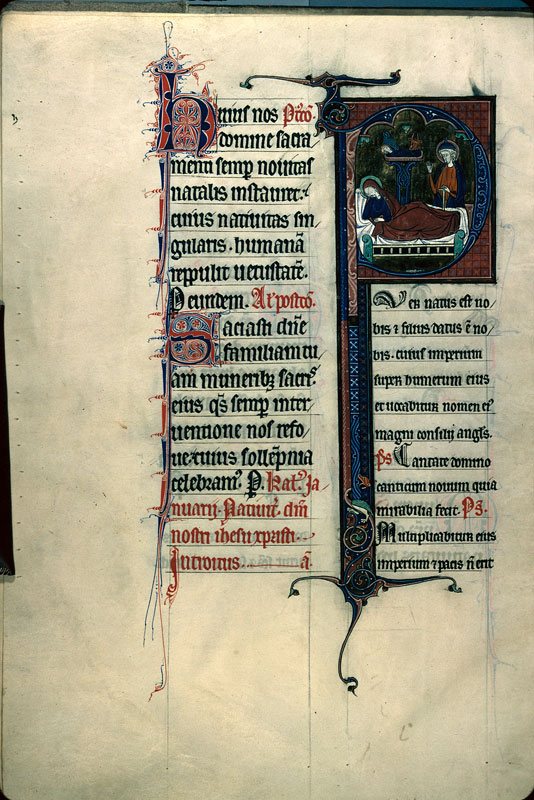 Huius nos P̄cō.
domine sacra
menti semp nouitas
natalis instauret.
cuius natiuitas sin
gularis. humanā
reppulit uetustatē.
P eundem. A postcō.
Saciasti dn̄e
familiam tu
am munerib; sacris.
eius q̄s semp inter
uentione nos refo
ue. cuius sollēpnia
celebram᷒. P. kal. Ja
nuarii. Natiuit. dn̄i
nostri ihesu xpisti.
Introitus a.
Puer natus est no
bis ⁊ filius datus ē no
bis. cuius imperium
super humerum eius
et uocabitur nomen ei᷒
magni consilij angl᷒s.
ps Cantate domino
canticum nouum quia
mirabilia fecit. P.
Multiplicabitur eius
imperium ⁊ pacis n̄ erit